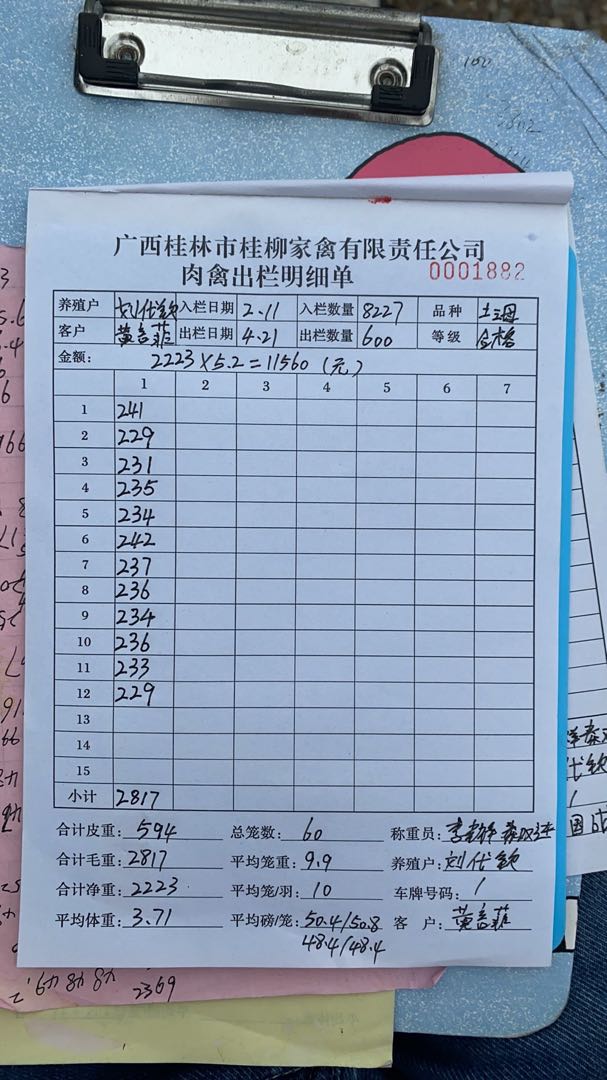 广西桂林市桂柳家禽有限责任公司
肉禽出栏明细单 0001882
养殖户 刘代钦 入栏日期 2.11 入栏数量 8227 品种 土三母
客户 黄言菲 出栏日期 4.21 出栏数量 600 等级 合格
金额: 2223×5.2=11560(元)
1 2 3 4 5 6 7
1 241
2 229
3 231
4 235
5 234
6 242
7 237
8 236
9 234
10 236
11 233
12 229
13
14
15
小计 2817
合计皮重: 594 总笼数: 60 称重员:
合计毛重: 2817 平均笼重: 9.9 养殖户: 刘代钦
合计净重: 2223 平均笼/羽: 10 车牌号码: /
平均体重: 3.71 平均磅/笼: 50.4/50.8 客 户: 黄言菲
48.4/48.4
2369